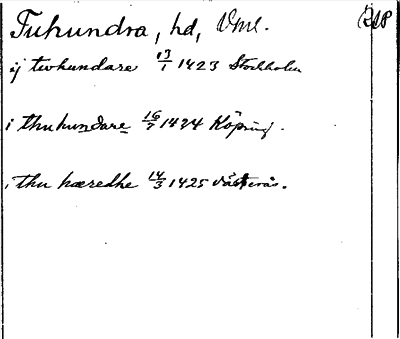 Tuhundra, hd, Vml. RAP
ij twhundare 13/1 1423 Stockholm
i thuhundare 16/7 1424 Köping.
i thu hæredhe 14/3 1425 Västerås.